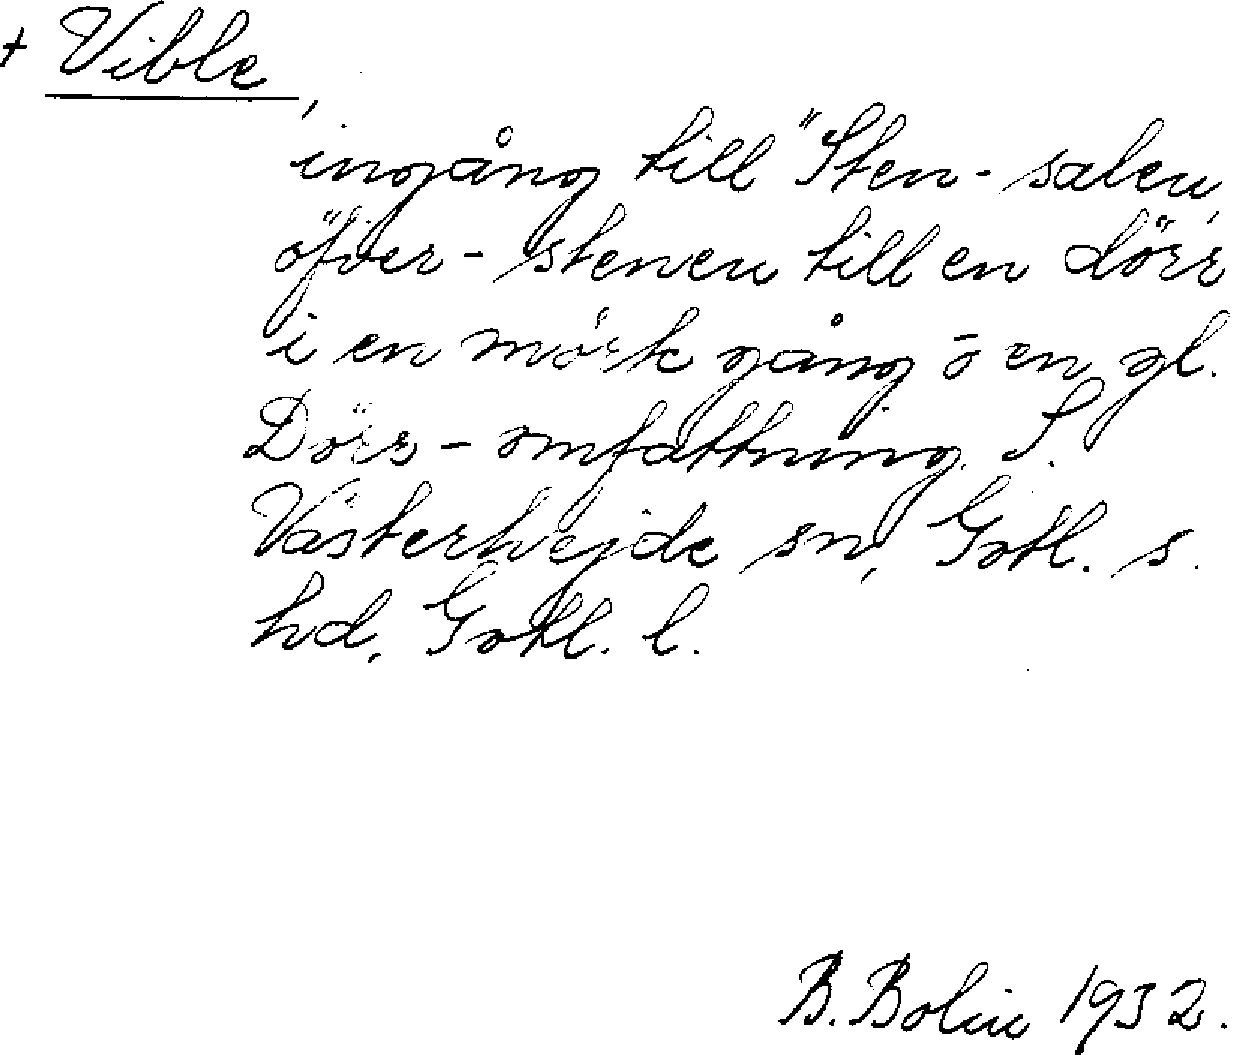 + Vible,
ingång till "Sten-salen,
öfver-stenen till en dörr
i en mörk gång ō en gl.
Dörr-omfattning. S.
Västerhejde sn, Gotl. s.
hd, Gotl. l.
B. Bolin 1932.